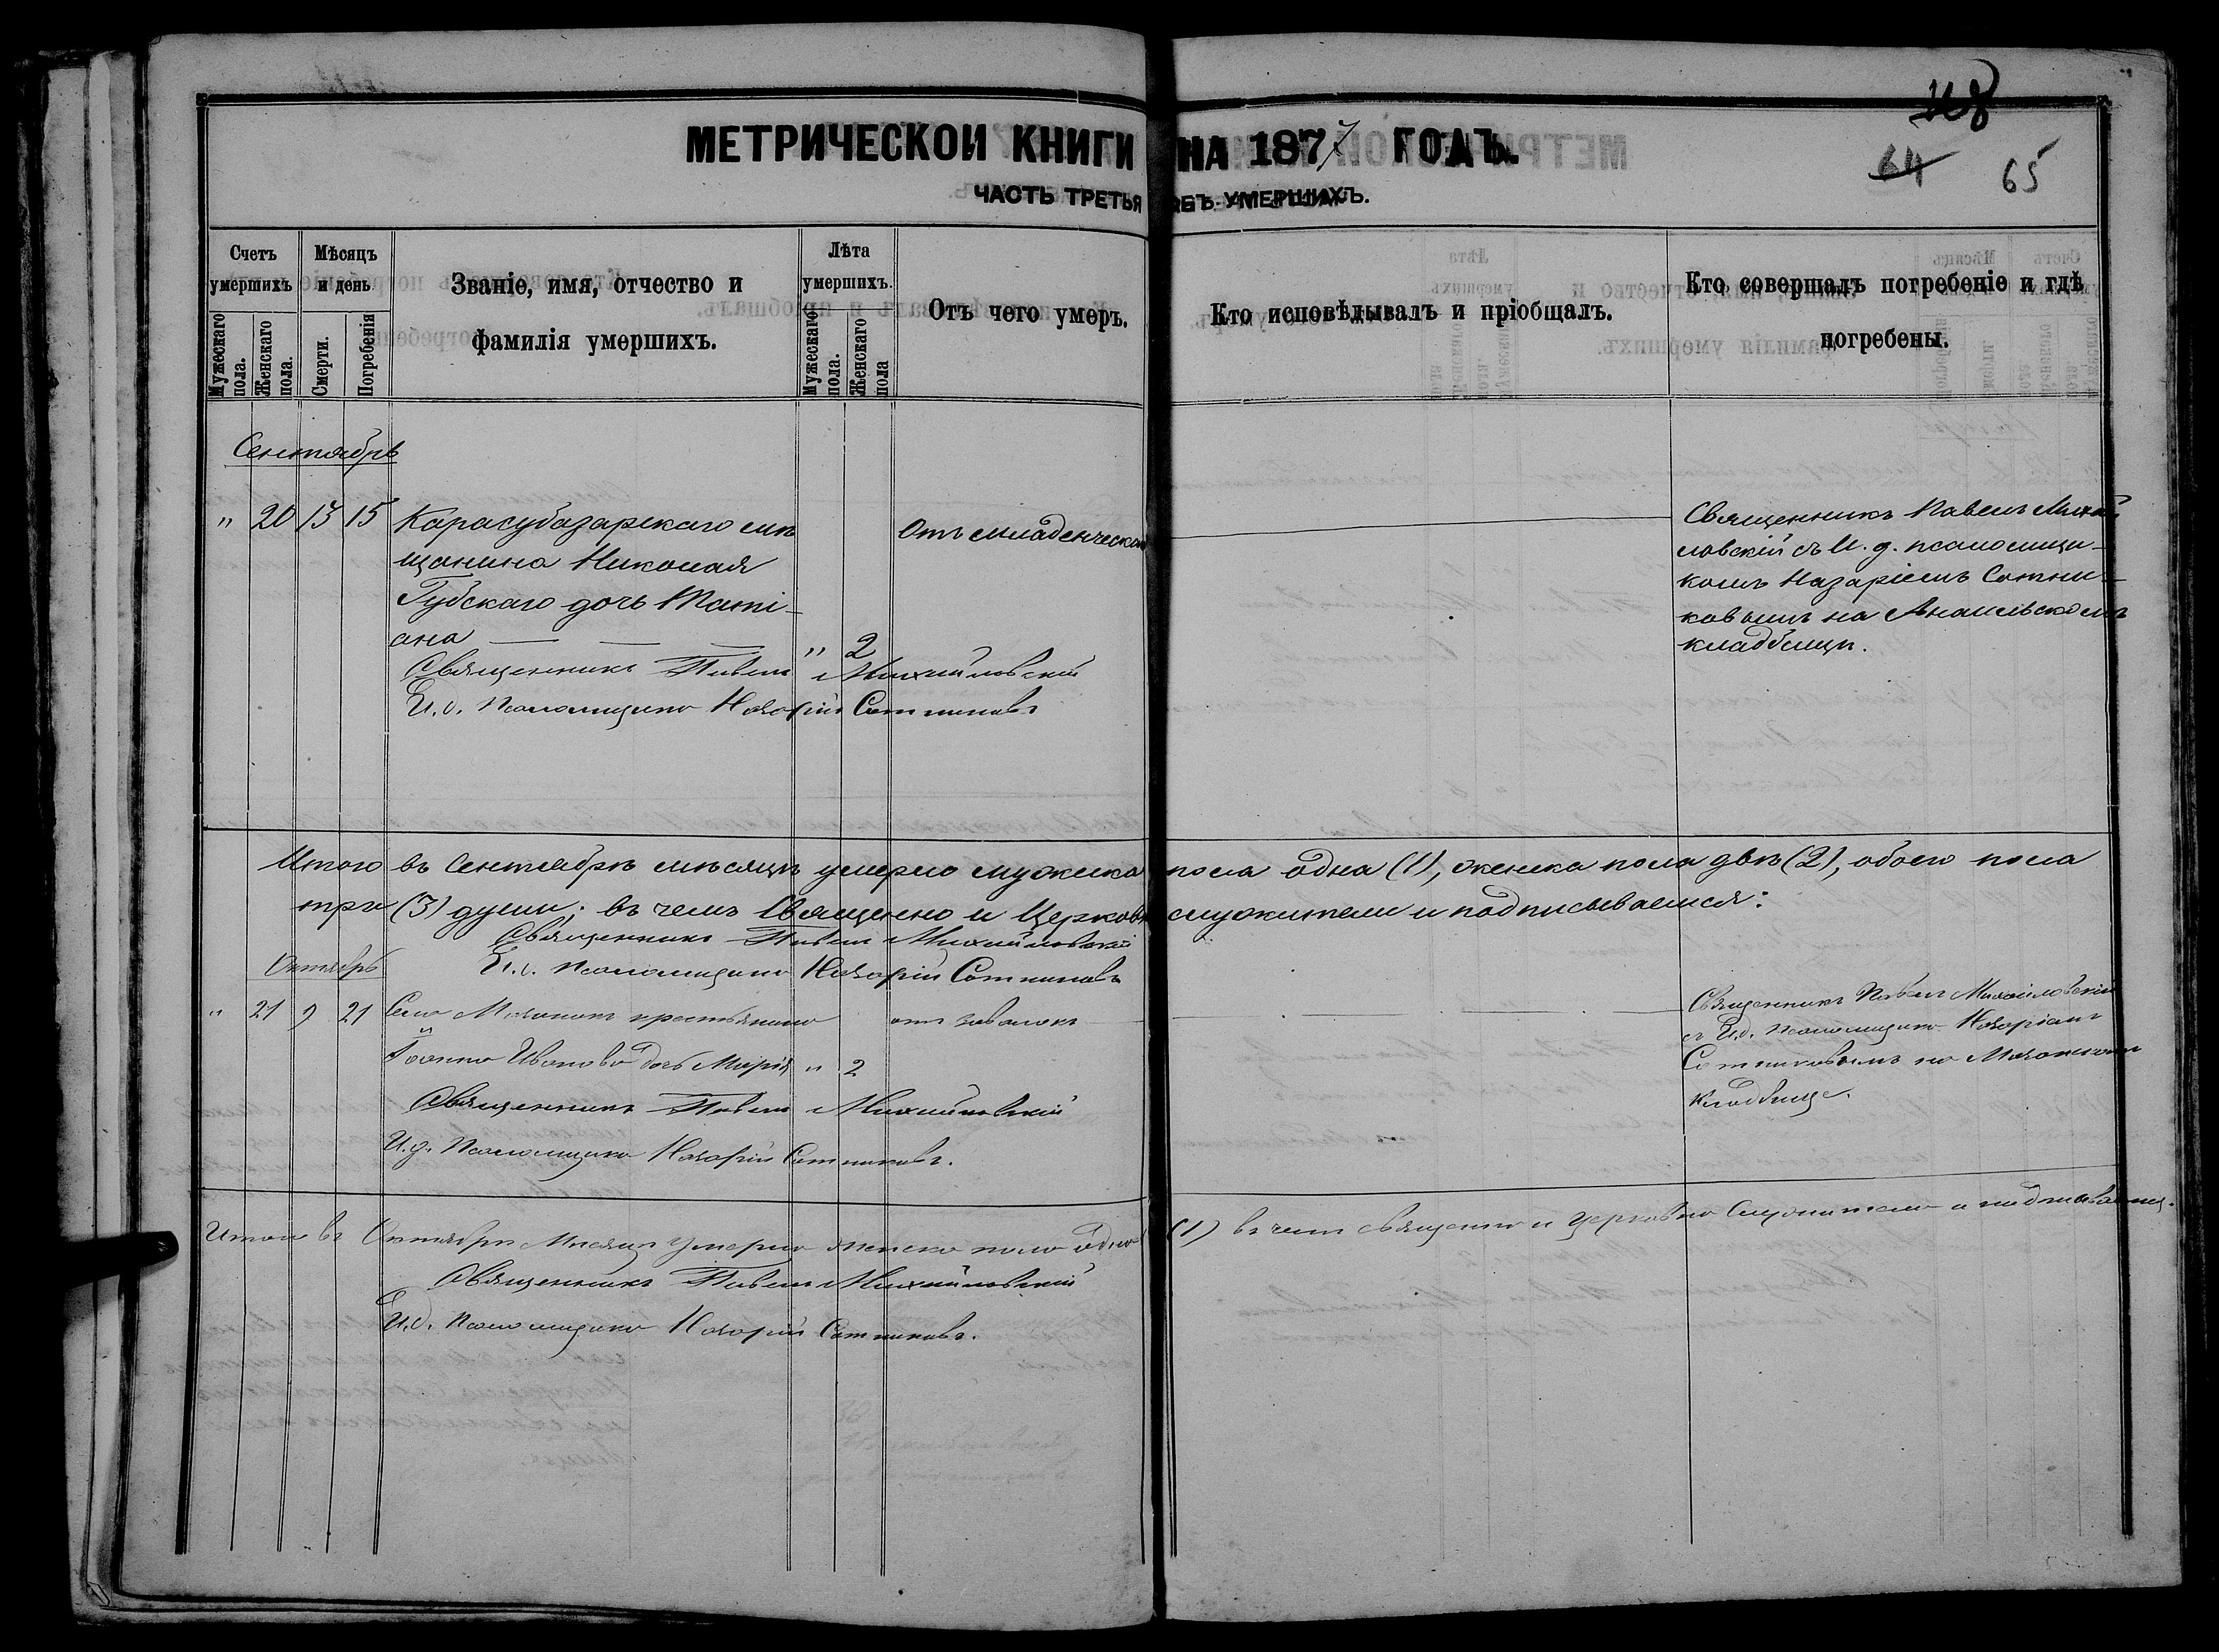 МЕТРИЧЕСКОЙ КНИГИ НА 1877 ГОДЪ.
ЧАСТЬ ТРЕТЬЯ ОБЪ УМЕРШИХЪ.
64
65
Счетъ умершихъ.
Мужескаго пола.
Женскаго пола.
Мѣсяцъ и день
Смерти.
Погребенія
Званіе, имя, отчество и
фамилія умершихъ.
Лѣта умершихъ.
Мужескаго пола.
Женскаго пола
Отъ чего умеръ.
Кто исповѣдывалъ и пріобщалъ.
Кто совершалъ погребеніе и гдѣ
погребены.
Сентябрь
" 20 13 15 Карасубазарскаго мѣ
щанина Николая
Губскаго дочь Таті-
ана " 2
Отъ младенческой
Священникъ Павелъ Михай
ловскій съ И. д. псаломщи-
комъ Назаріемъ Сотни-
ковымъ на
кладбищѣ.
Священникъ Павелъ Михайловскій
И. д. Псаломщика Назарій Сотниковъ
Итого въ Сентябрѣ мѣсяцѣ умерло мужеска пола одна (1), женска пола двѣ (2), обоего пола
три (3) души; въ чемъ Священно и Церковно служители и подписываемся:
Священникъ Павелъ Михайловскій
И. д. Псаломщика Назарій Сотниковъ
Октябрь
" 21 9 21 Села крестьянина
Іоанна Иванова дочь Марія " 2
отъ
Священникъ Павелъ Михайловскій
съ И. д. Псаломщика Назаріемъ
Сотниковымъ на
Кладбище.
Священникъ Павелъ Михайловскій
И. д. Псаломщика Назарій Сотниковъ.
Итого въ Октябрѣ Мѣсяцѣ Умерло женска пола одна (1) въ чемъ священно и Церковно Служители и подписываемся.
Священникъ Павелъ Михайловскій
И. д. Псаломщика Назарій Сотниковъ.